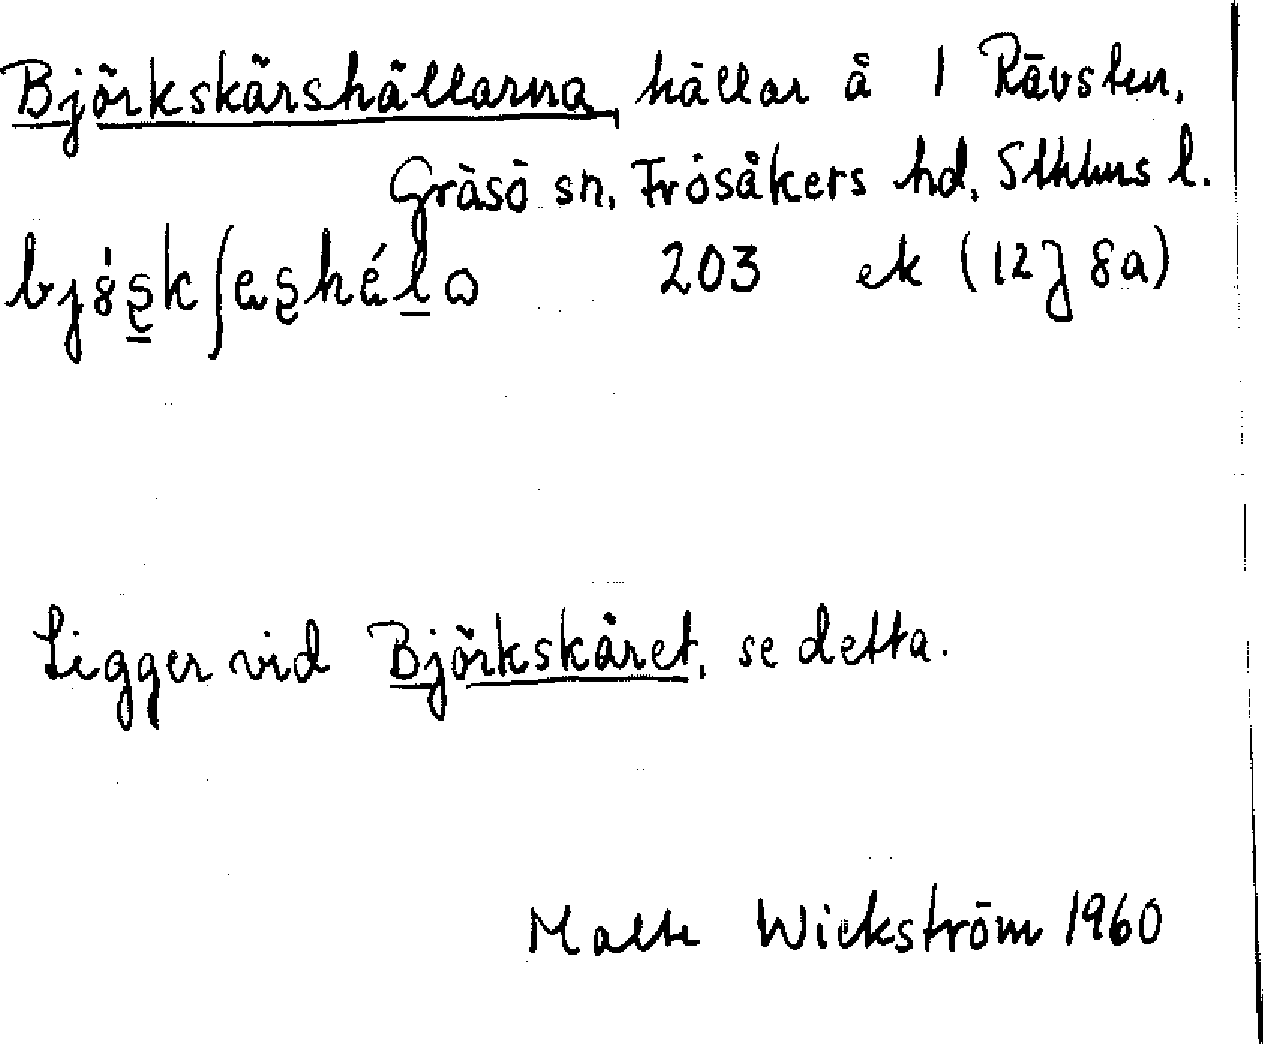 Björkskärshällarna, hällar å 1 Rävsten,
Gräsö sn, Frösåkers hd, Sthlms l.
203 ek (12J 8a)
Ligger vid Björkskäret, se detta.
Malte Wickström 1960